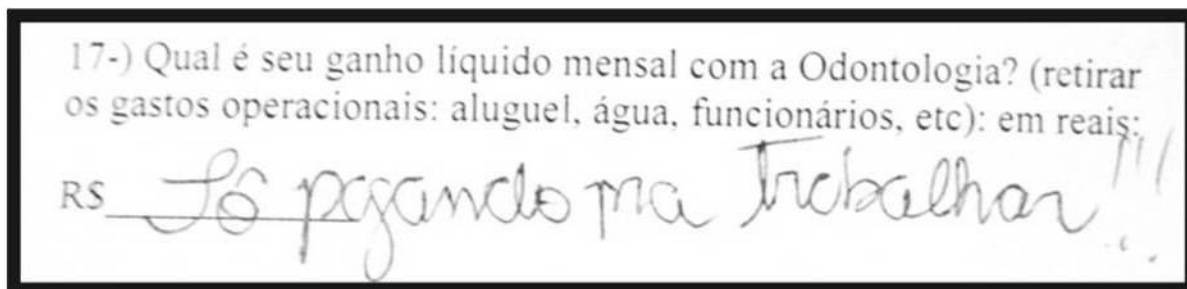 17-) Qual é seu ganho líquido mensal com a Odontologia? (retirar
os gastos operacionais: aluguel, água, funcionários, etc): em reais:
R$ Tô pagando pra trabalhar!!!